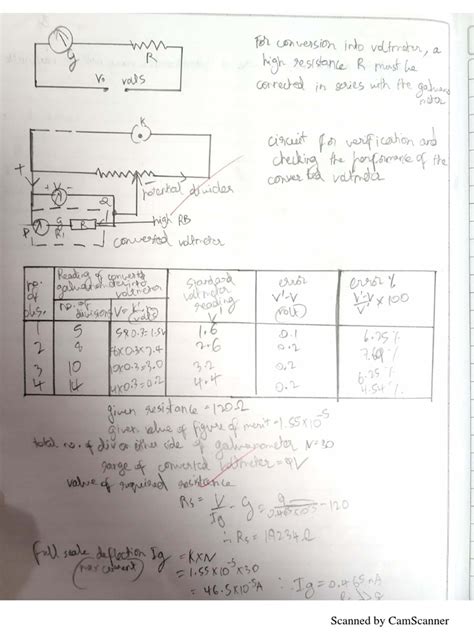 G
R
Vo volts
For conversion into voltmeter, a
high resistance R must be
connected in series with the galvano
meter
K
circuit for verification and
checking the performance of the
converted voltmeter
+
V
Potential divider
Q
high RB
P
G
R
converted voltmeter
no. of obs.
Reading of converted galvanometer into voltmeter
no. of divisions
standard voltmeter reading V'
error V'-V (volt)
error % V'-V/V' x 100
1 5 5x0.3=1.5V 1.6 0.1 6.25%
2 8 8x0.3=2.4 2.6 0.2 7.69%
3 10 10x0.3=3.0 3.2 0.2 6.25%
4 14 4.4 0.2 4.54%
given resistance = 120Ω
given value of figure of merit = 1.55x10⁻⁵
total no. of div on other side of galvanometer N=30
range of converted voltmeter = 9V
value of required resistance
Rs = V/Ig - G = -120
∴ Rs = 19234Ω
full scale deflection Ig = KXN
(max current) = 1.55x10⁻⁵x30
= 46.5x10⁻⁵A ∴ Ig = 0.465 mA
Scanned by CamScanner